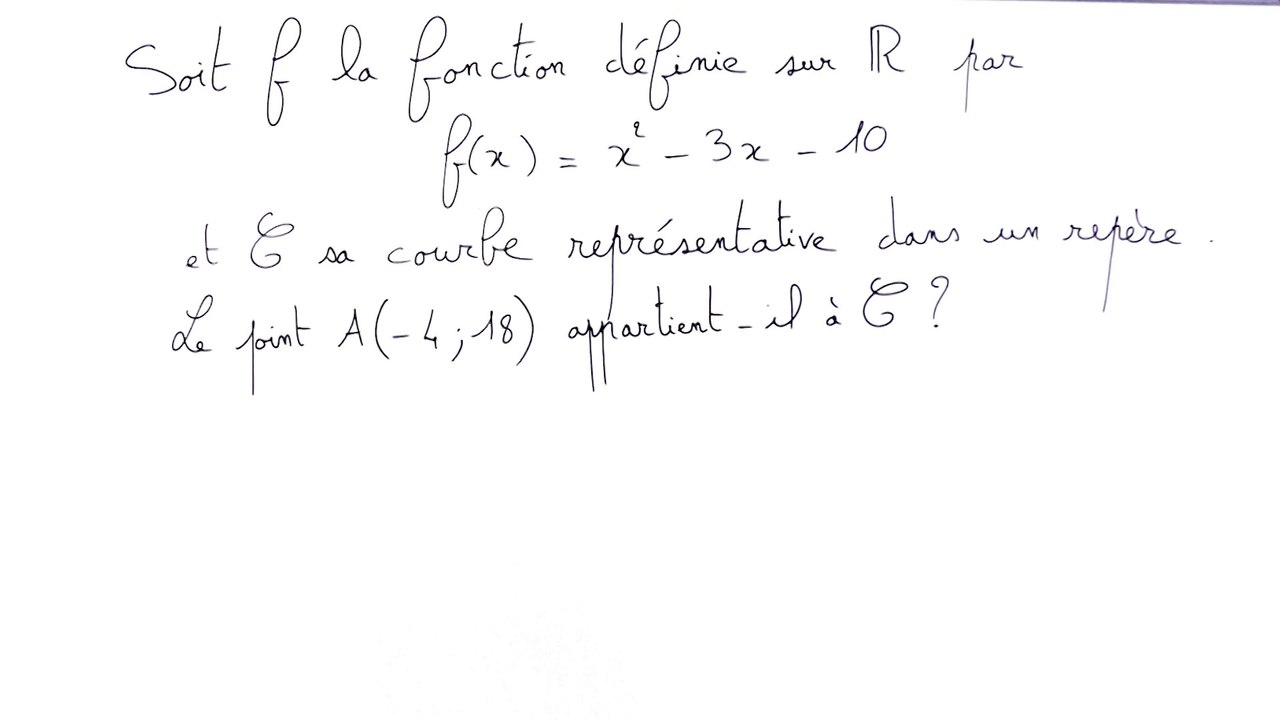 Soit f la fonction définie sur ℝ par
f(x) = x² - 3x - 10
et 𝒞 sa courbe représentative dans un repère.
Le point A(-4 ; 18) appartient-il à 𝒞 ?